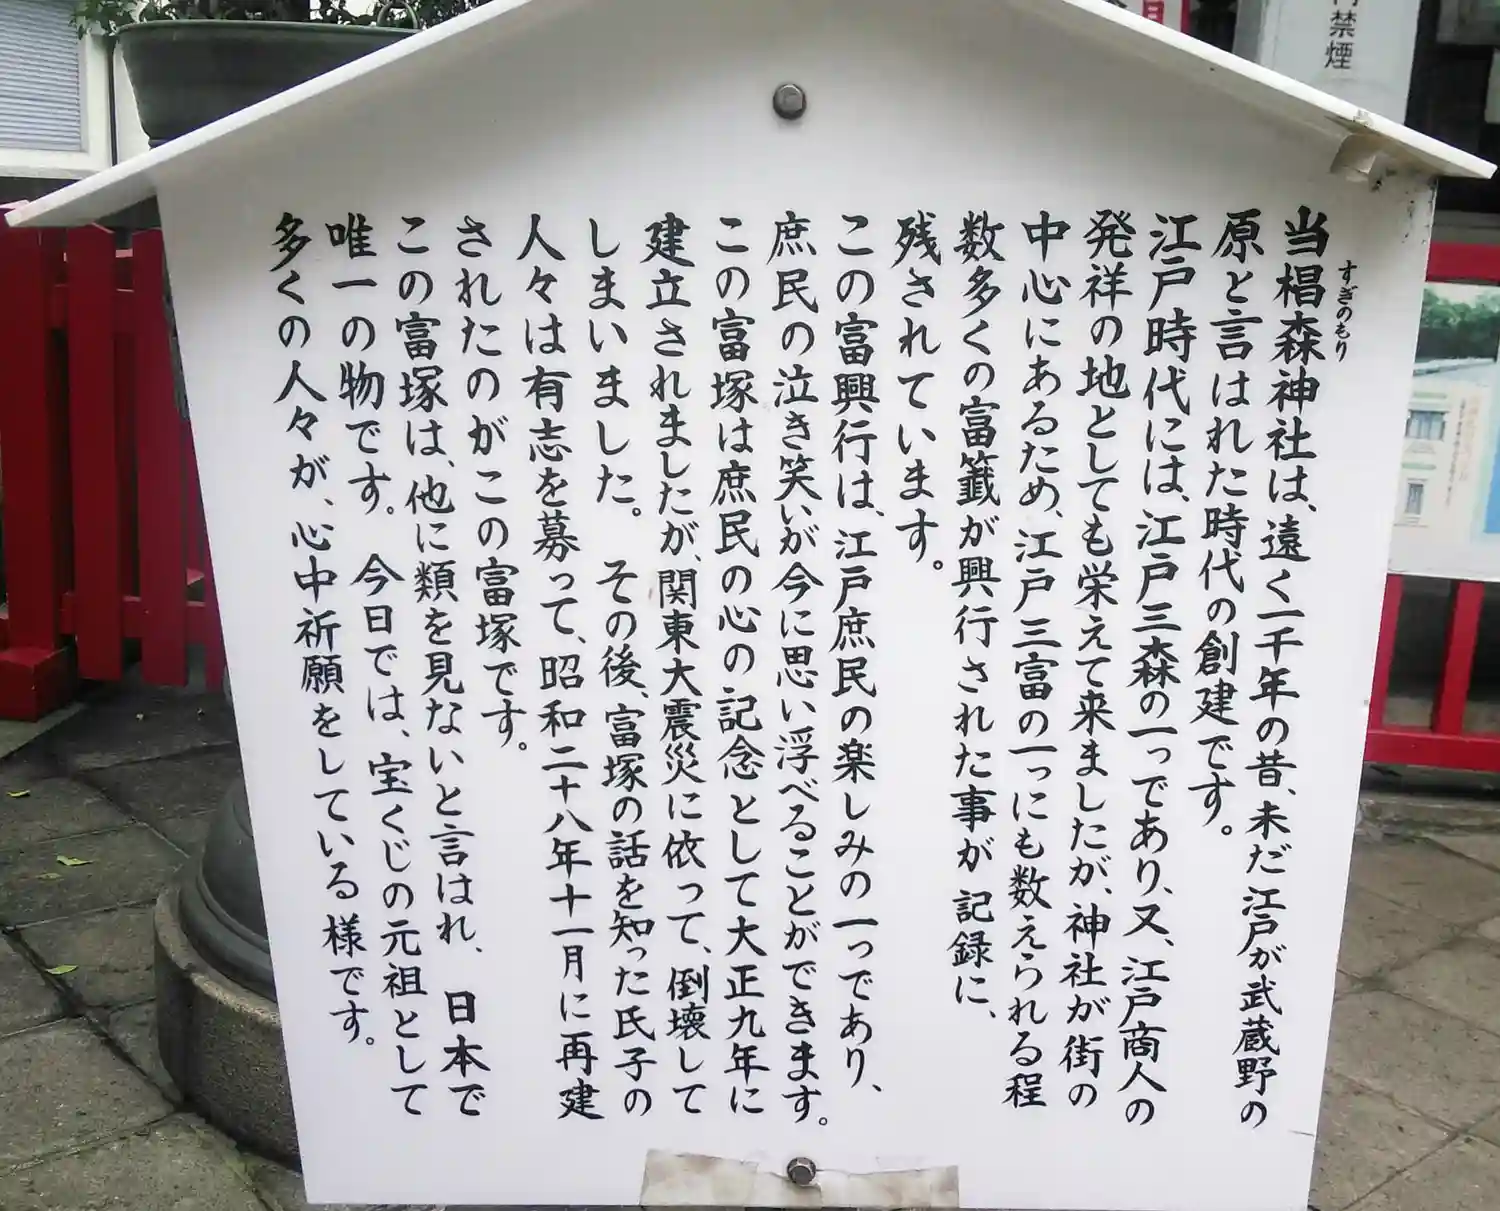 当椙森神社は、遠く一千年の昔、未だ江戸が武蔵野の
すぎのもり
原と言はれた時代の創建です。
江戸時代には、江戸三森の一つであり、又、江戸商人の
発祥の地としても栄えて来ましたが、神社が街の
中心にあるため、江戸三富の一つにも数えられる程
数多くの富籤が興行された事が記録に、
残されています。
この富興行は、江戸庶民の楽しみの一つであり、
庶民の泣き笑いが今に思い浮べることができます。
この富塚は庶民の心の記念として大正九年に
建立されましたが、関東大震災に依って、倒壊して
しまいました。 その後、富塚の話を知った氏子の
人々は有志を募って、昭和二十八年十一月に再建
されたのがこの富塚です。
この富塚は、他に類を見ないと言はれ、 日本で
唯一の物です。 今日では、宝くじの元祖として
多くの人々が、心中祈願をしている様です。
禁煙